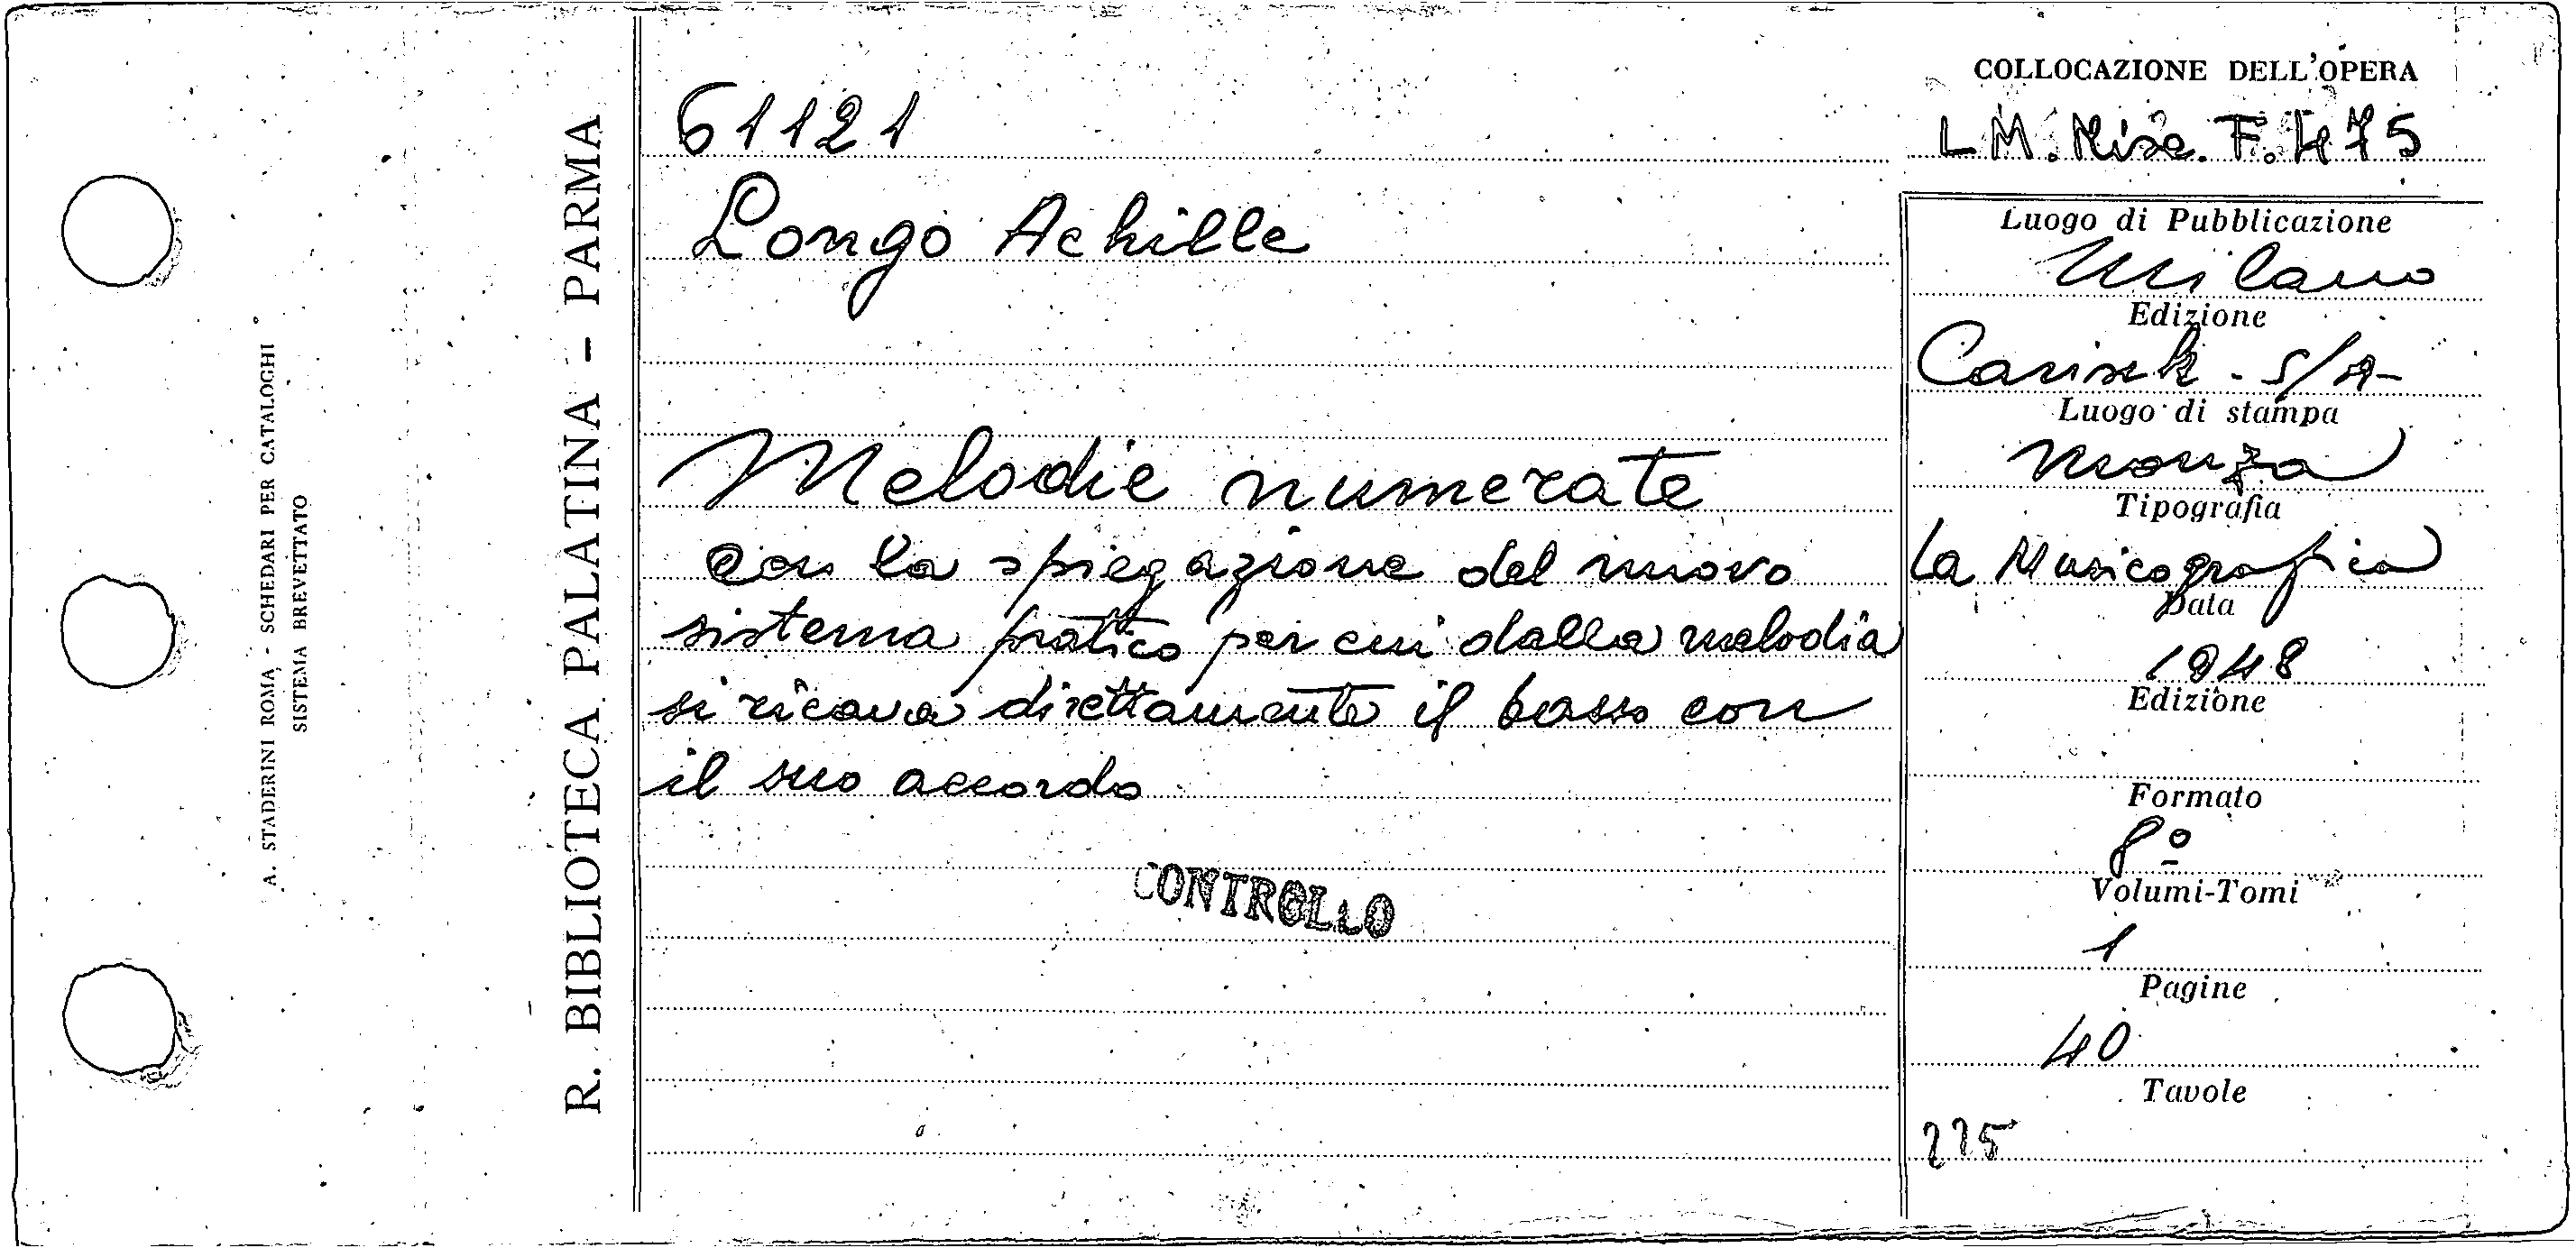 A. STADERINI ROMA - SCHEDARI PER CATALOGHI
SISTEMA BREVETTATO
R. BIBLIOTECA PALATINA - PARMA
61121
Longo Achille
Melodie numerate
con la spiegazione del nuovo
sistema pratico per cui dalla melodia
si ricava direttamente il basso con
il suo accordo
CONTROLLO
COLLOCAZIONE DELL'OPERA
L M. Misc. F. 475
Luogo di Pubblicazione
Milano
Edizione
Carisch - S/A -
Luogo di stampa
Monza
Tipografia
La Musicografica
Data
1948
Edizione
Formato
8º
Volumi-Tomi
1
Pagine
40
Tavole